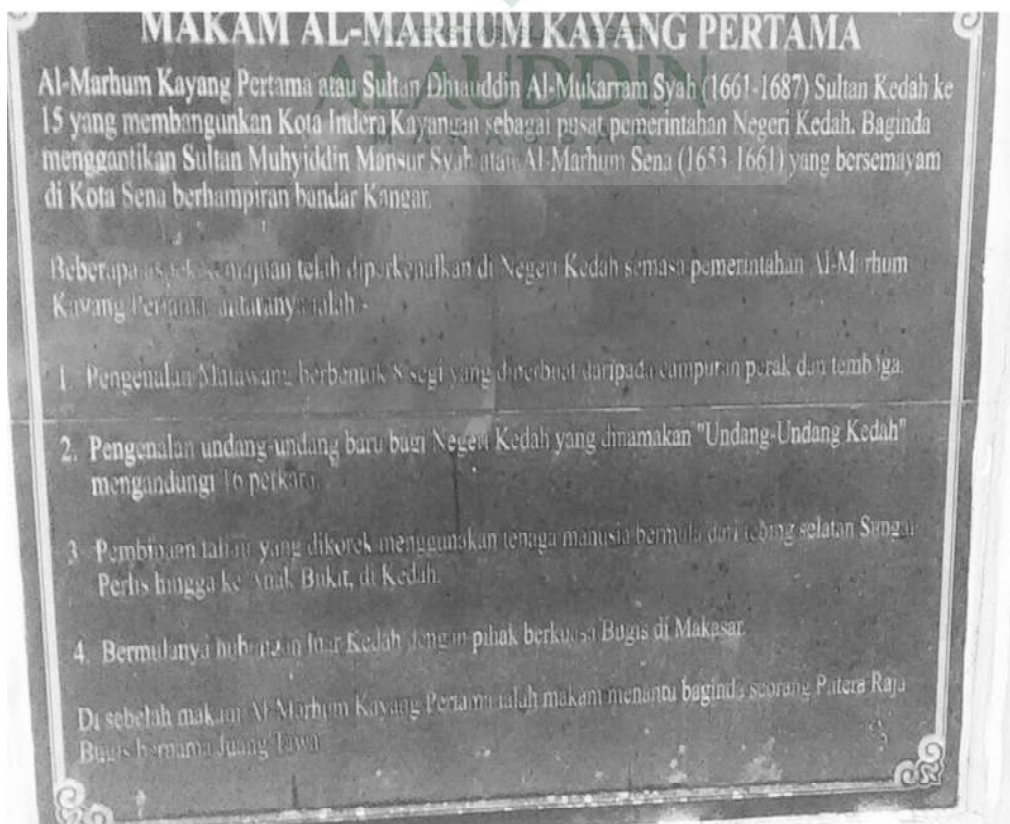 MAKAM AL-MARHUM KAYANG PERTAMA
UNIVERSITAS ISLAM NEGERI
ALAUDDIN
MAKASSAR
Al-Marhum Kayang Pertama atau Sultan Dhiauddin Al-Mukarram Syah (1661-1687) Sultan Kedah ke
15 yang membangunkan Kota Indera Kayangan sebagai pusat pemerintahan Negeri Kedah. Baginda
menggantikan Sultan Muhyiddin Mansur Syah atau Al-Marhum Sena (1653-1661) yang bersemayam
di Kota Sena berhampiran bandar Kangar.
Beberapa aspek kemajuan telah diperkenalkan di Negeri Kedah semasa pemerintahan Al-Marhum
Kayang Pertama antaranya ialah :-
1. Pengenalan Matawang berbentuk 8 segi yang diperbuat daripada campuran perak dan tembaga.
2. Pengenalan undang-undang baru bagi Negeri Kedah yang dinamakan "Undang-Undang Kedah"
mengandungi 16 perkara.
3. Pembinaan taliair yang dikorek menggunakan tenaga manusia bermula dari tebing selatan Sungai
Perlis hingga ke Anak Bukit, di Kedah.
4. Bermulanya hubungan luar Kedah dengan pihak berkuasa Bugis di Makasar.
Di sebelah makam Al-Marhum Kayang Pertama ialah makam menantu baginda seorang Putera Raja
Bugis bernama Juang Tawa